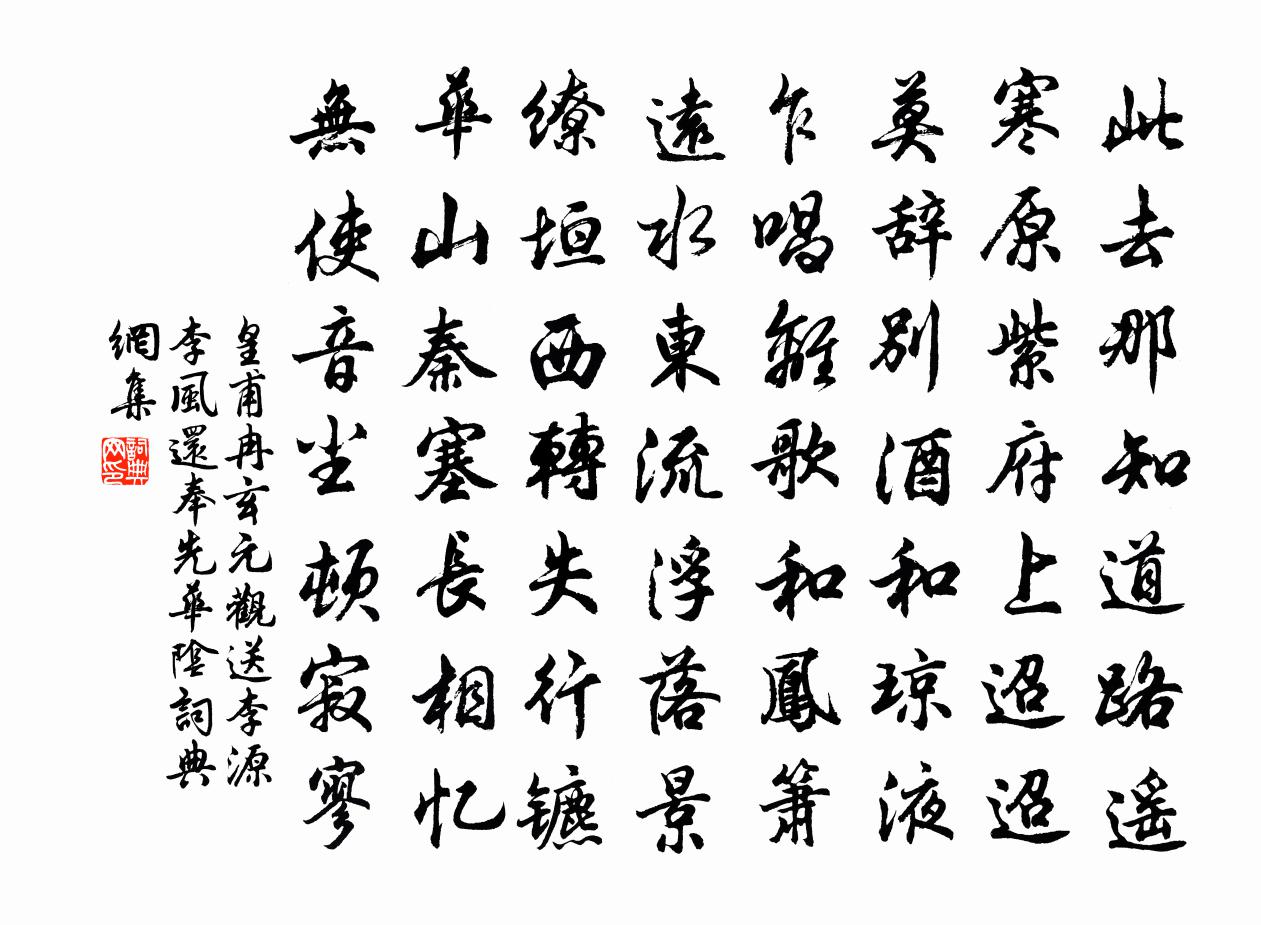 此去那知道路遥
寒原紫府上迢迢
莫辞别酒和琼液
乍唱離歌和鳳簫
遠水東流浮落景
繚垣西轉失行镳
華山秦塞長相忆
無使音尘頓寂寥
皇甫冉玄元觀送李源
李風還奉先華陰詞典
網集
詞典网印